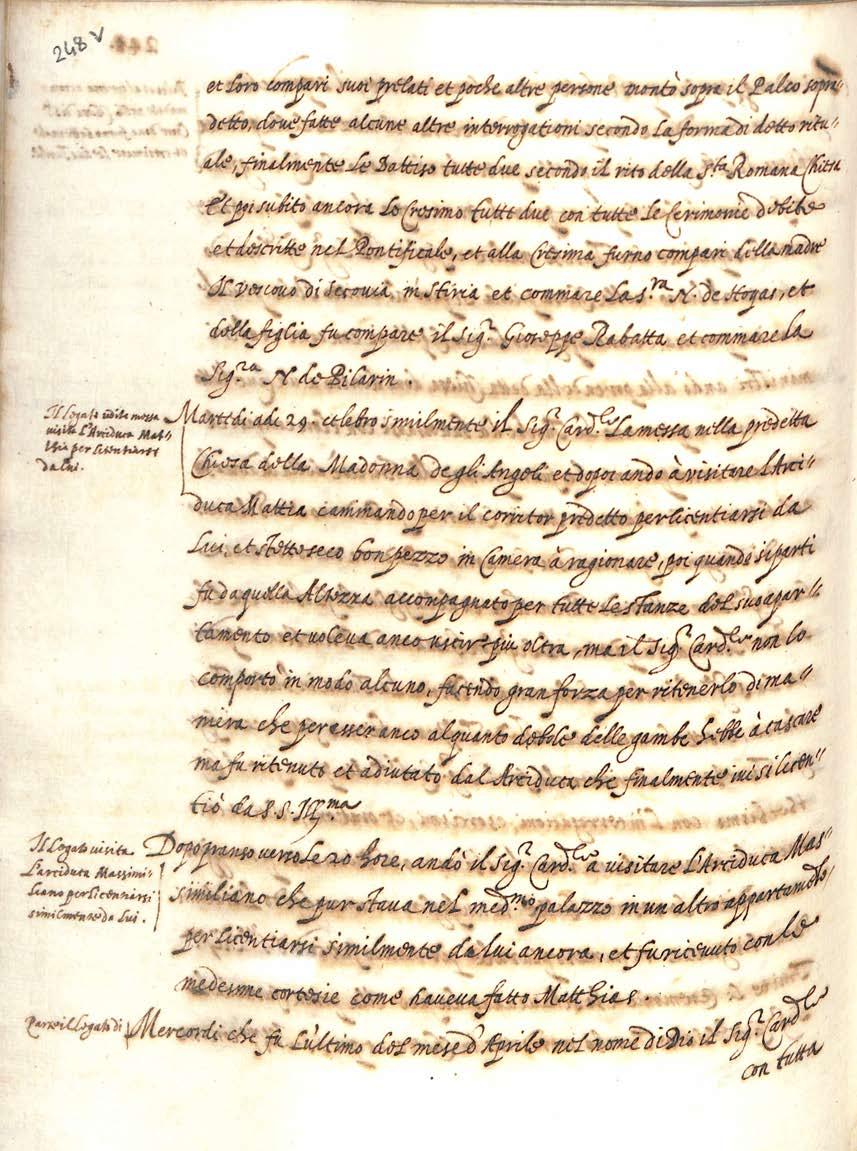 248 v
et loro compari suoi prelati et poche altre persone montò sopra il Palco sopra=
detto, dove fatte alcune altre interrogationi secondo la forma di detto ritu=
ale, finalmente le Battizo tutte due secondo il rito della S.ta Romana Chiesa
Et poi subito ancora le Cresimo tutte due con tutte le Cerimonie debite
et descritte nel Pontificale, et alla Cresima furno compari della madre
Il vescovo di Secovia in Stiria et commare la S.ra N. de Hoyas, et
della figlia fu compare il Sig.r Gioseppe Rabatta et commare la
Sig.ra N de Pilarin.
Il Legato udita messa
visita l'Arciduca Mat=
thia per licentiarsi
da lui.
Marttdi adi 29. celebro similmente il Sig.r Card.le la messa nella predetta
Chiesa della Madonna degli Angeli et dopoi andò à visitare l'Arci=
duca Mattia caminando per il corritor predetto per licentiarsi da
lui, et stette seco bon pezzo in Camera à ragionare, poi quando si parti
fu da quella Altezza accompagnato per tutte le stanze del suo apar=
tamento et voleva anco uscire più oltra, ma il Sig.r Card.le non lo
comportò in modo alcuno, facendo gran forza per ritenerlo di ma=
niera che per esser anco alquanto debole delle gambe hebbe à cascare
ma fu ritenuto et adiutato dal Arciduca che finalmente ivi si licen=
tiò da S.S. Ill.ma
Il Legato visita
l'arciduca Massimi=
liano per licentiarsi
similmente da lui.
Dopo pranso verso le 20 hore, andò il Sig.r Card.le a visitare l'Arciduca Mas=
similiano che pur stava nel med.mo palazzo in un altro appartamento,
per licentiarsi similmente da lui ancora, et fu ricevuto con le
medesime cortesie come haveva fatto Matthias.
Parte il Legato di
Mercordi che fu l'ultimo del mese d'Aprile nel nome di Dio il Sig.r Card.le
con tutta